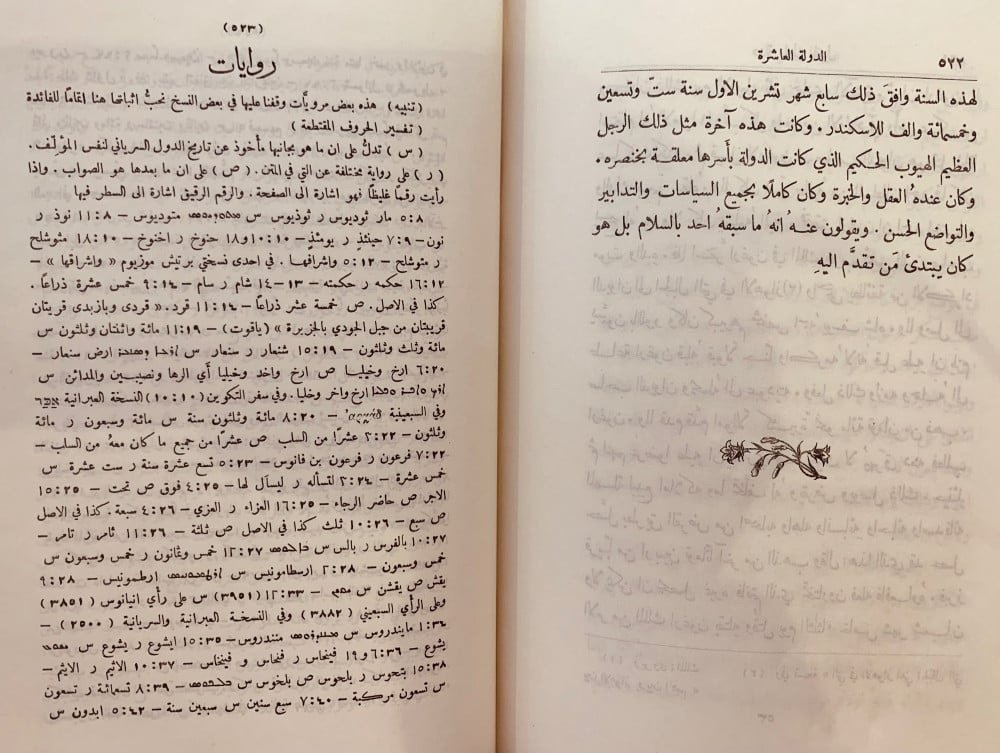 ٥٢٢ الدولة العاشرة
لهذه السنة وافقَ ذلك سابع شهر تشرين الاول سنة ستّ وتسعين
وخمسمائة والف للاسكندر. وكانت هذه آخرة مثل ذلك الرجل
العظيم المهيوب الحكيم الذي كانت الدولة بأسرها معلقة بخنصره.
وكان عندهُ العقل والخبرة وكان كاملًا بجميع السياسات والتدابير
والتواضع الحسن. ويقولون عنهُ انهُ ما سبقهُ احد بالسلام بل هو
كان يبتدئ مَن تقدَّم اليهِ
(٥٢٣)
روايات
(تنبيه) هذه بعض مرويَّات وقفنا عليها في بعض النسخ نحبُّ اثباتها هنا اتمامًا للفائدة
(تفسير الحروف المقتطعة)
(س) تدلُّ على ان ما هو بجانبها مأخوذ عن تاريخ الدول السرياني لنفس المؤَلف.
(ر) على رواية مختلفة عن التي في المتن. (ص) على ان ما بعدها هو الصواب. واذا
رأيت رقمًا غليظًا فهو اشارة الى الصفحة. والرقم الرقيق اشارة الى السطر فيها
٨:٥ مار ثوديوس ر ثوذيوس س متوديوس – ١١:٨ نوذ ر
نون – ٧:٩ حينئذٍ ر يومئذٍ – ١٠:١٠ و١٨ حنوخ ر اخنوخ – ١٨:١٠ متوشلح
ر متوشلح – ٥:١٢ واشراقها. في احدى نسختي برتيش موزيوم «واشراقها» –
١٦:١٢ حكمه ر حكمته – ١٣–١٤ شام ر سام – ٩:١٤ خمس عشرة ذراعًا.
كذا في الاصل. ص خمسة عشر ذراعًا – ١١:١٤ قرد. « قردى وبازبدى قريتان
قريبتان من جبل الجودي بالجزيرة » (ياقوت) – ١١:١٩ مائة واثنتان وثلثون س
مائة وثلث وثلثون – ١٥:١٩ شنعار ر سنعار س ارض سنعار –
٦:٢٠ ارخ وخيليا ص ارخ واخد وخيليا أي الرها ونصيبين والمدائن س
ارخ واخر وخليا. وفي سفر التكوين (١٠:١٠) النسخة العبرانية
وفي السبعينية – ٨:٢٠ مائة وثلثون سنة س مائة وسبعون ر مائة
وثلثون – ٢:٢٢ عشرًا من السلب ص عشرًا من جميع ما كان معهُ من السلب –
٧:٢٢ فرعون ر فرعون بن فانوس – ٥:٢٣ تسع عشرة سنة ر ست عشرة س
خمس عشرة – ٢:٢٤ لتسأله ر ليسأل لها – ٤:٢٥ فوق ص تحت – ١٥:٢٥
الاجر ص حاضر الرجاء – ١٦:٢٥ العزاء ر العزي – ٤:٢٦ سبعة. كذا في الاصل
ص سبع – ١٠:٢٦ ثلث كذا في الاصل ص ثلثة – ١١:٢٦ ثامر ر تامر –
١٠:٢٧ بالفرس ر بالس س ١٢:٢٧ خمس وثمانون ر خمس وسبعون س
خمس وسبعون – ٢:٢٨ ارسطامونيس س ارطمونيس – ٩:٢٨
يقش ص يقشن س – ١٢:٣٣ (3951) س على رأي انيانوس (3851)
وعلى الرأي السبعيني (3882) وفي النسخة العبرانية والسريانية (2500) –
١:٣٤ مايندروس س منندروس – ١٥:٣٥ ايشوع ر يشوع س
يشوع – ٦:٣٦ و١٩ فينحاس ر فنحاس و فينخاس – ١٠:٣٧ الاثير ر الاثيم –
١٥:٣٨ بتحوس ر بلحوس ص بلخوس س – ٨:٣٩ تسعمائة ر تسعون
س تسعون مركبة – ٧:٤٠ سبع سنين س سبعين سنة – ٥:٤٢ ابدون س